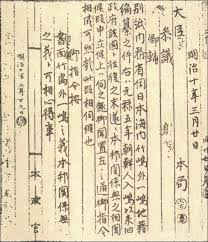 明治十年三月廿日
本局
大臣
参議
別紙内務省伺日本海内竹嶋外一嶋地籍
編纂之件右ハ元禄五年朝鮮人入嶋以来旧
政府該国ト往復之末遂ニ本邦関係無之相聞
候段申立候上ハ伺之趣御聞置左之通御指令
相成可然哉此段相伺候也
御指令按
竹島外一嶋之義本邦関係無
之義ト可相心得事
明治十年三月廿九日